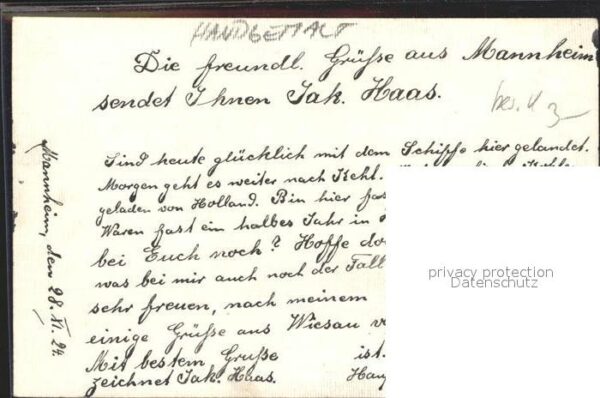 HANDGEMALT
Die freundl. Grüße aus Mannheim
sendet Ihnen Jak. Haas.
bes. V
Mannheim, den 28. XI. 24.
Sind heute glücklich mit dem Schiffe hier gelandet.
Morgen geht es weiter nach Kehl.
geladen von Holland. Bin hier fas
Waren fast ein halbes Jahr in
bei Euch noch? Hoffe do
was bei mir auch noch der Fall
sehr freuen, nach meinem
einige Grüße aus Wiesau v
Mit bestem Gruße ist.
zeichnet Jak. Haas. Han
privacy protection
Datenschutz